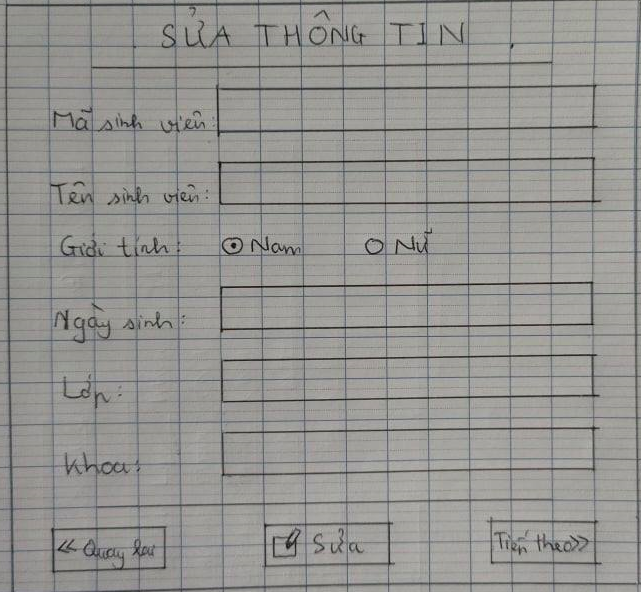 SỬA THÔNG TIN
Mã sinh viên:
Tên sinh viên:
Giới tính: Nam Nữ
Ngày sinh:
Lớp:
Khoa:
<< Quay lại Sửa Tiếp theo>>